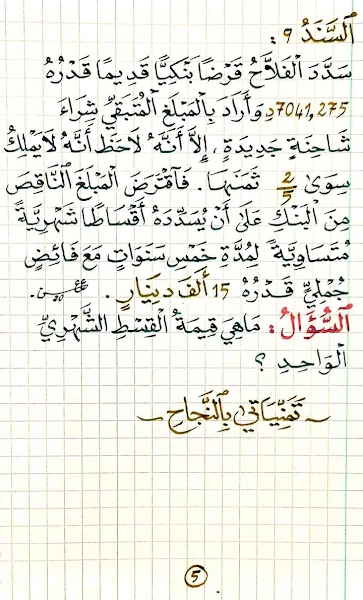 اَلسَّنَدُ 9 :
سَدَّدَ الْفَلَّاحُ قَرْضًا بَنْكِيًّا قَدِيمًا قَدْرُهُ
7041,275د وَأَرَادَ بِالْمَبْلَغِ الْمُتَبَقِّي شِرَاءَ
شَاحِنَةٍ جَدِيدَةٍ ، إِلَّا أَنَّهُ لَاحَظَ أَنَّهُ لَا يَمْلِكُ
سِوَى 2/5 ثَمَنِهَا . فَاقْتَرَضَ الْمَبْلَغَ النَّاقِصَ
مِنَ الْبَنْكِ عَلَى أَنْ يُسَدِّدَهُ أَقْسَاطًا شَهْرِيَّةً
مُتَسَاوِيَةً لِمُدَّةِ خَمْسِ سَنَوَاتٍ مَعَ فَائِضٍ
جُمْلِيٍّ قَدْرُهُ 15 أَلْفَ دِينَارٍ .
اَلسُّؤَالُ : مَا هِيَ قِيمَةُ الْقِسْطِ الشَّهْرِيِّ
الْوَاحِدِ ؟
~ تَمَنِّيَاتِي بِالنَّجَاحِ ~
5